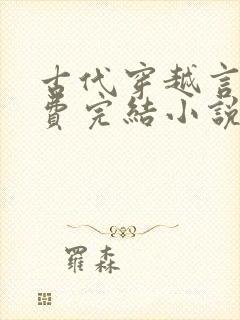 古代穿越言
費完結小說
羅森